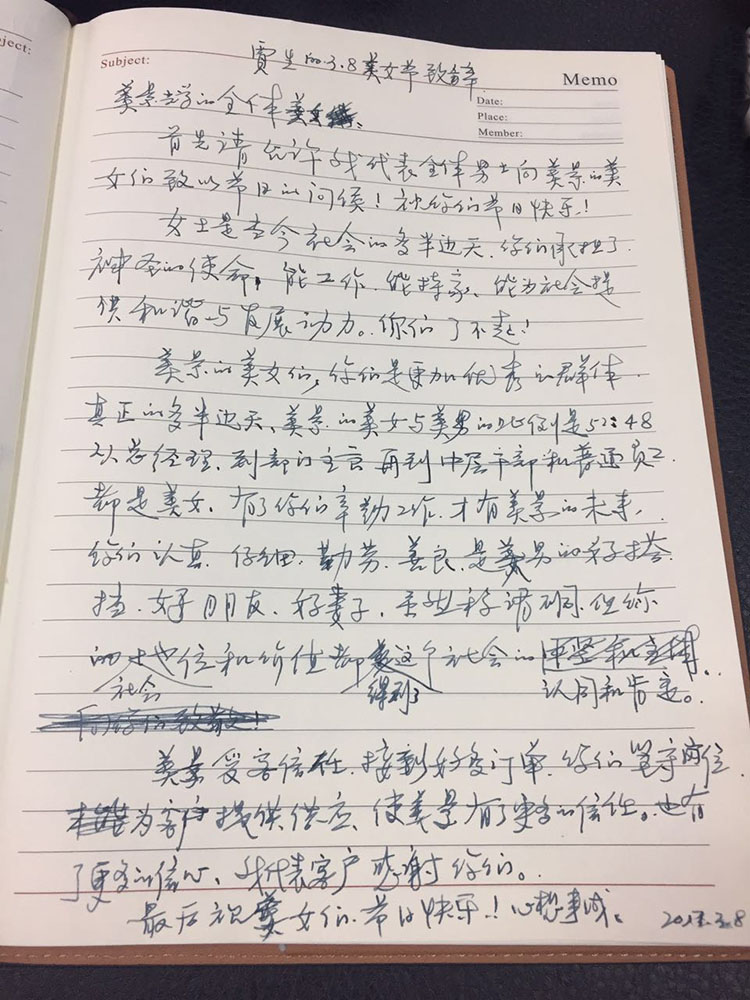 Subject:
贾生的3.8美女节致辞
Memo
Date:
Place:
Member:
美景光学的全体美女们、
首先请允许我代表全体男士向美景的美
女们致以节日的问候！祝你们节日快乐！
女士是当今社会的多半边天、你们承担了
神圣的使命，能工作、能持家、能为社会提
供和谐与发展动力。你们了不起！
美景的美女们，你们是更加优秀的群体、
真正的多半边天、美景的美女与美男的比例是52:48
从总经理、到部门主管再到中层干部和普通员工
都是美女、有了你们辛勤工作、才有美景的未来，
你们认真、仔细、勤劳、善良、是美男的好搭
挡、好朋友、好妻子，虽然称谓不同、但你
的地位和价值都是这个社会的中坚和主梁、
社会
得到了
认同和肯定。
美景受客信任、接到好多订单、你们
为客户提供供应、使美景有了更多的信任。也有
了更多的信心、我代表客户感谢你们。
最后祝美女们、节日快乐！心想事成、
3.8